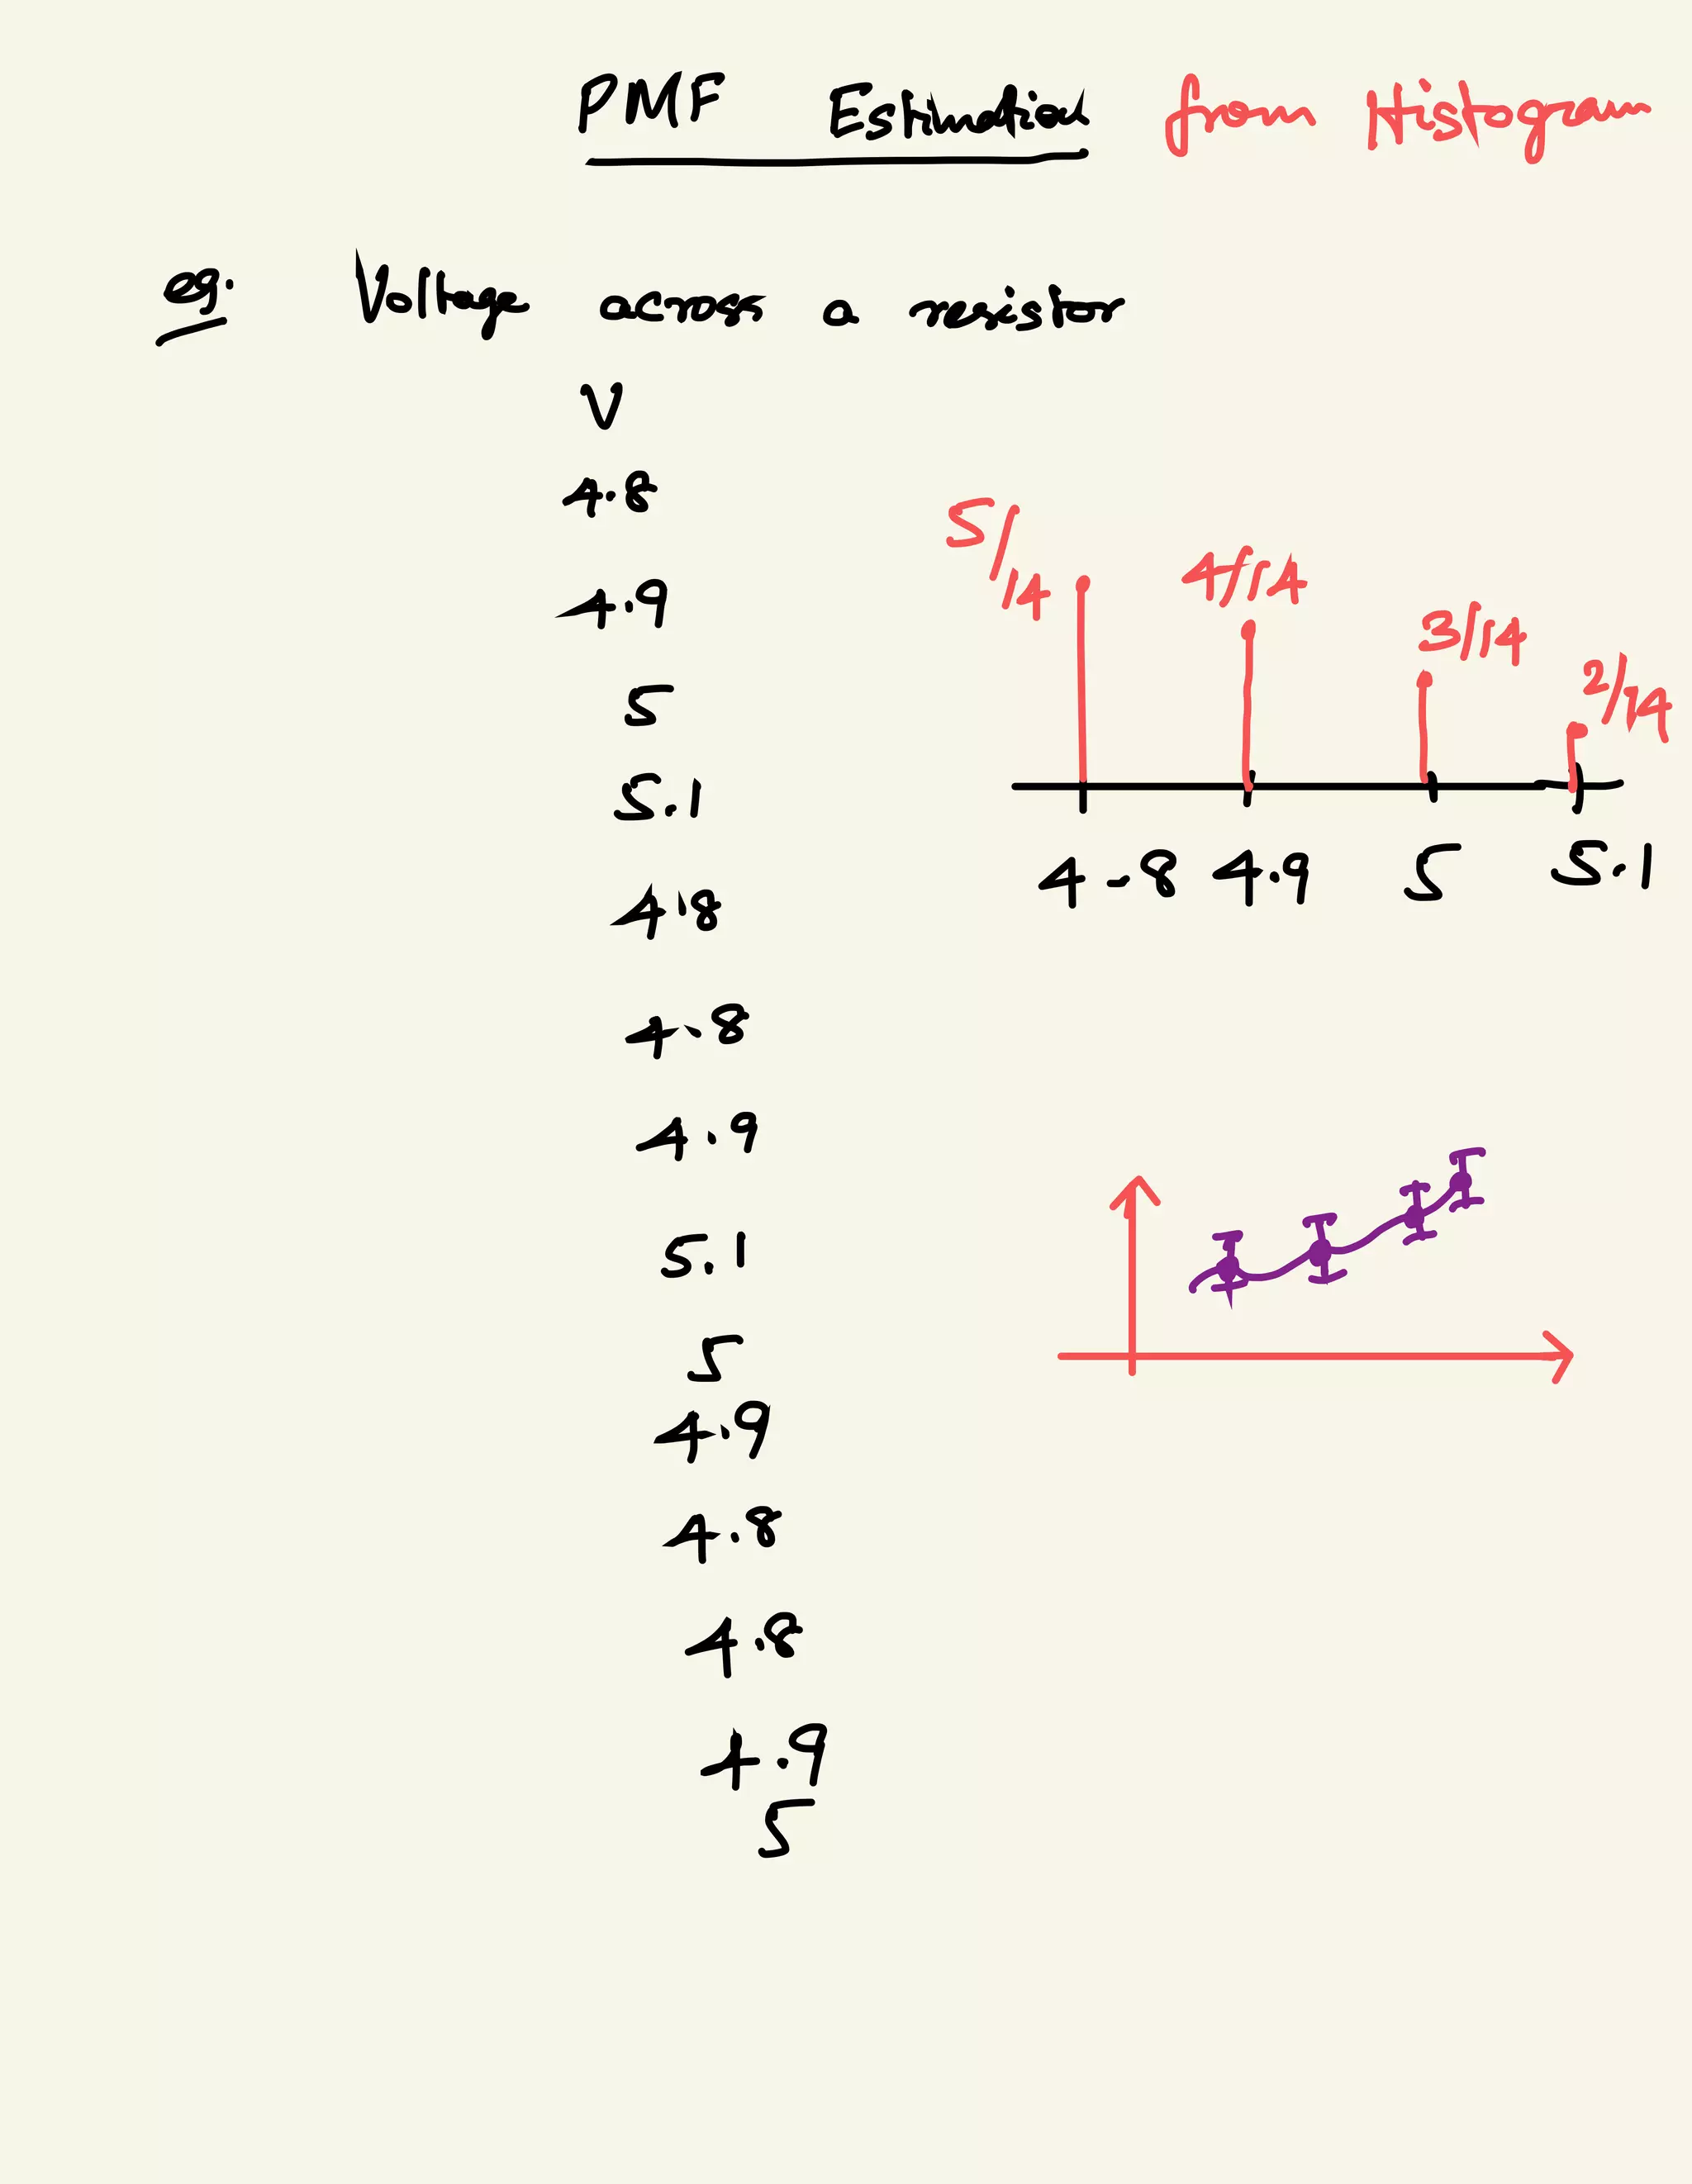 PMF Estimation from Histogram
eg. Voltage across a resistor
V
4.8
4.9
5
5.1
4.8
4.8
4.9
5.1
5
4.9
4.8
4.8
4.9
5
5/14 4/14 3/14 2/14
4.8 4.9 5 5.1